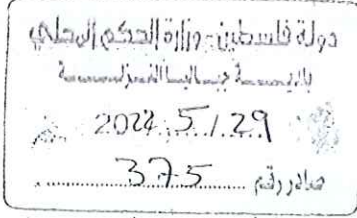 دولة فلسطين - وزارة الحكم المحلي
بلديـــة جبـــاليـــا النـــزلـــة
2024 5 / 29
صادر رقم 375